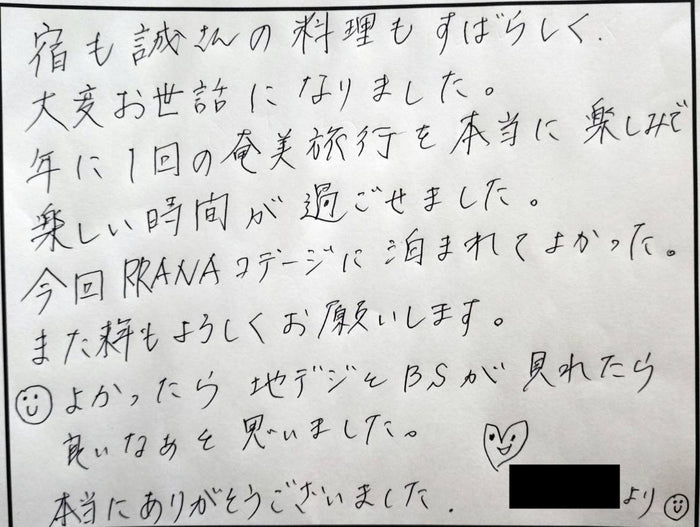 宿も誠さんの料理もすばらしく.
大変お世話になりました。
年に1回の奄美旅行を本当に楽しみで
楽しい時間が過ごせました。
今回PRANAコテージに泊まれてよかった。
また来年もよろしくお願いします。
よかったら 地デジとBSが見れたら
良いなあと思いました。
本当にありがとうございました.
より